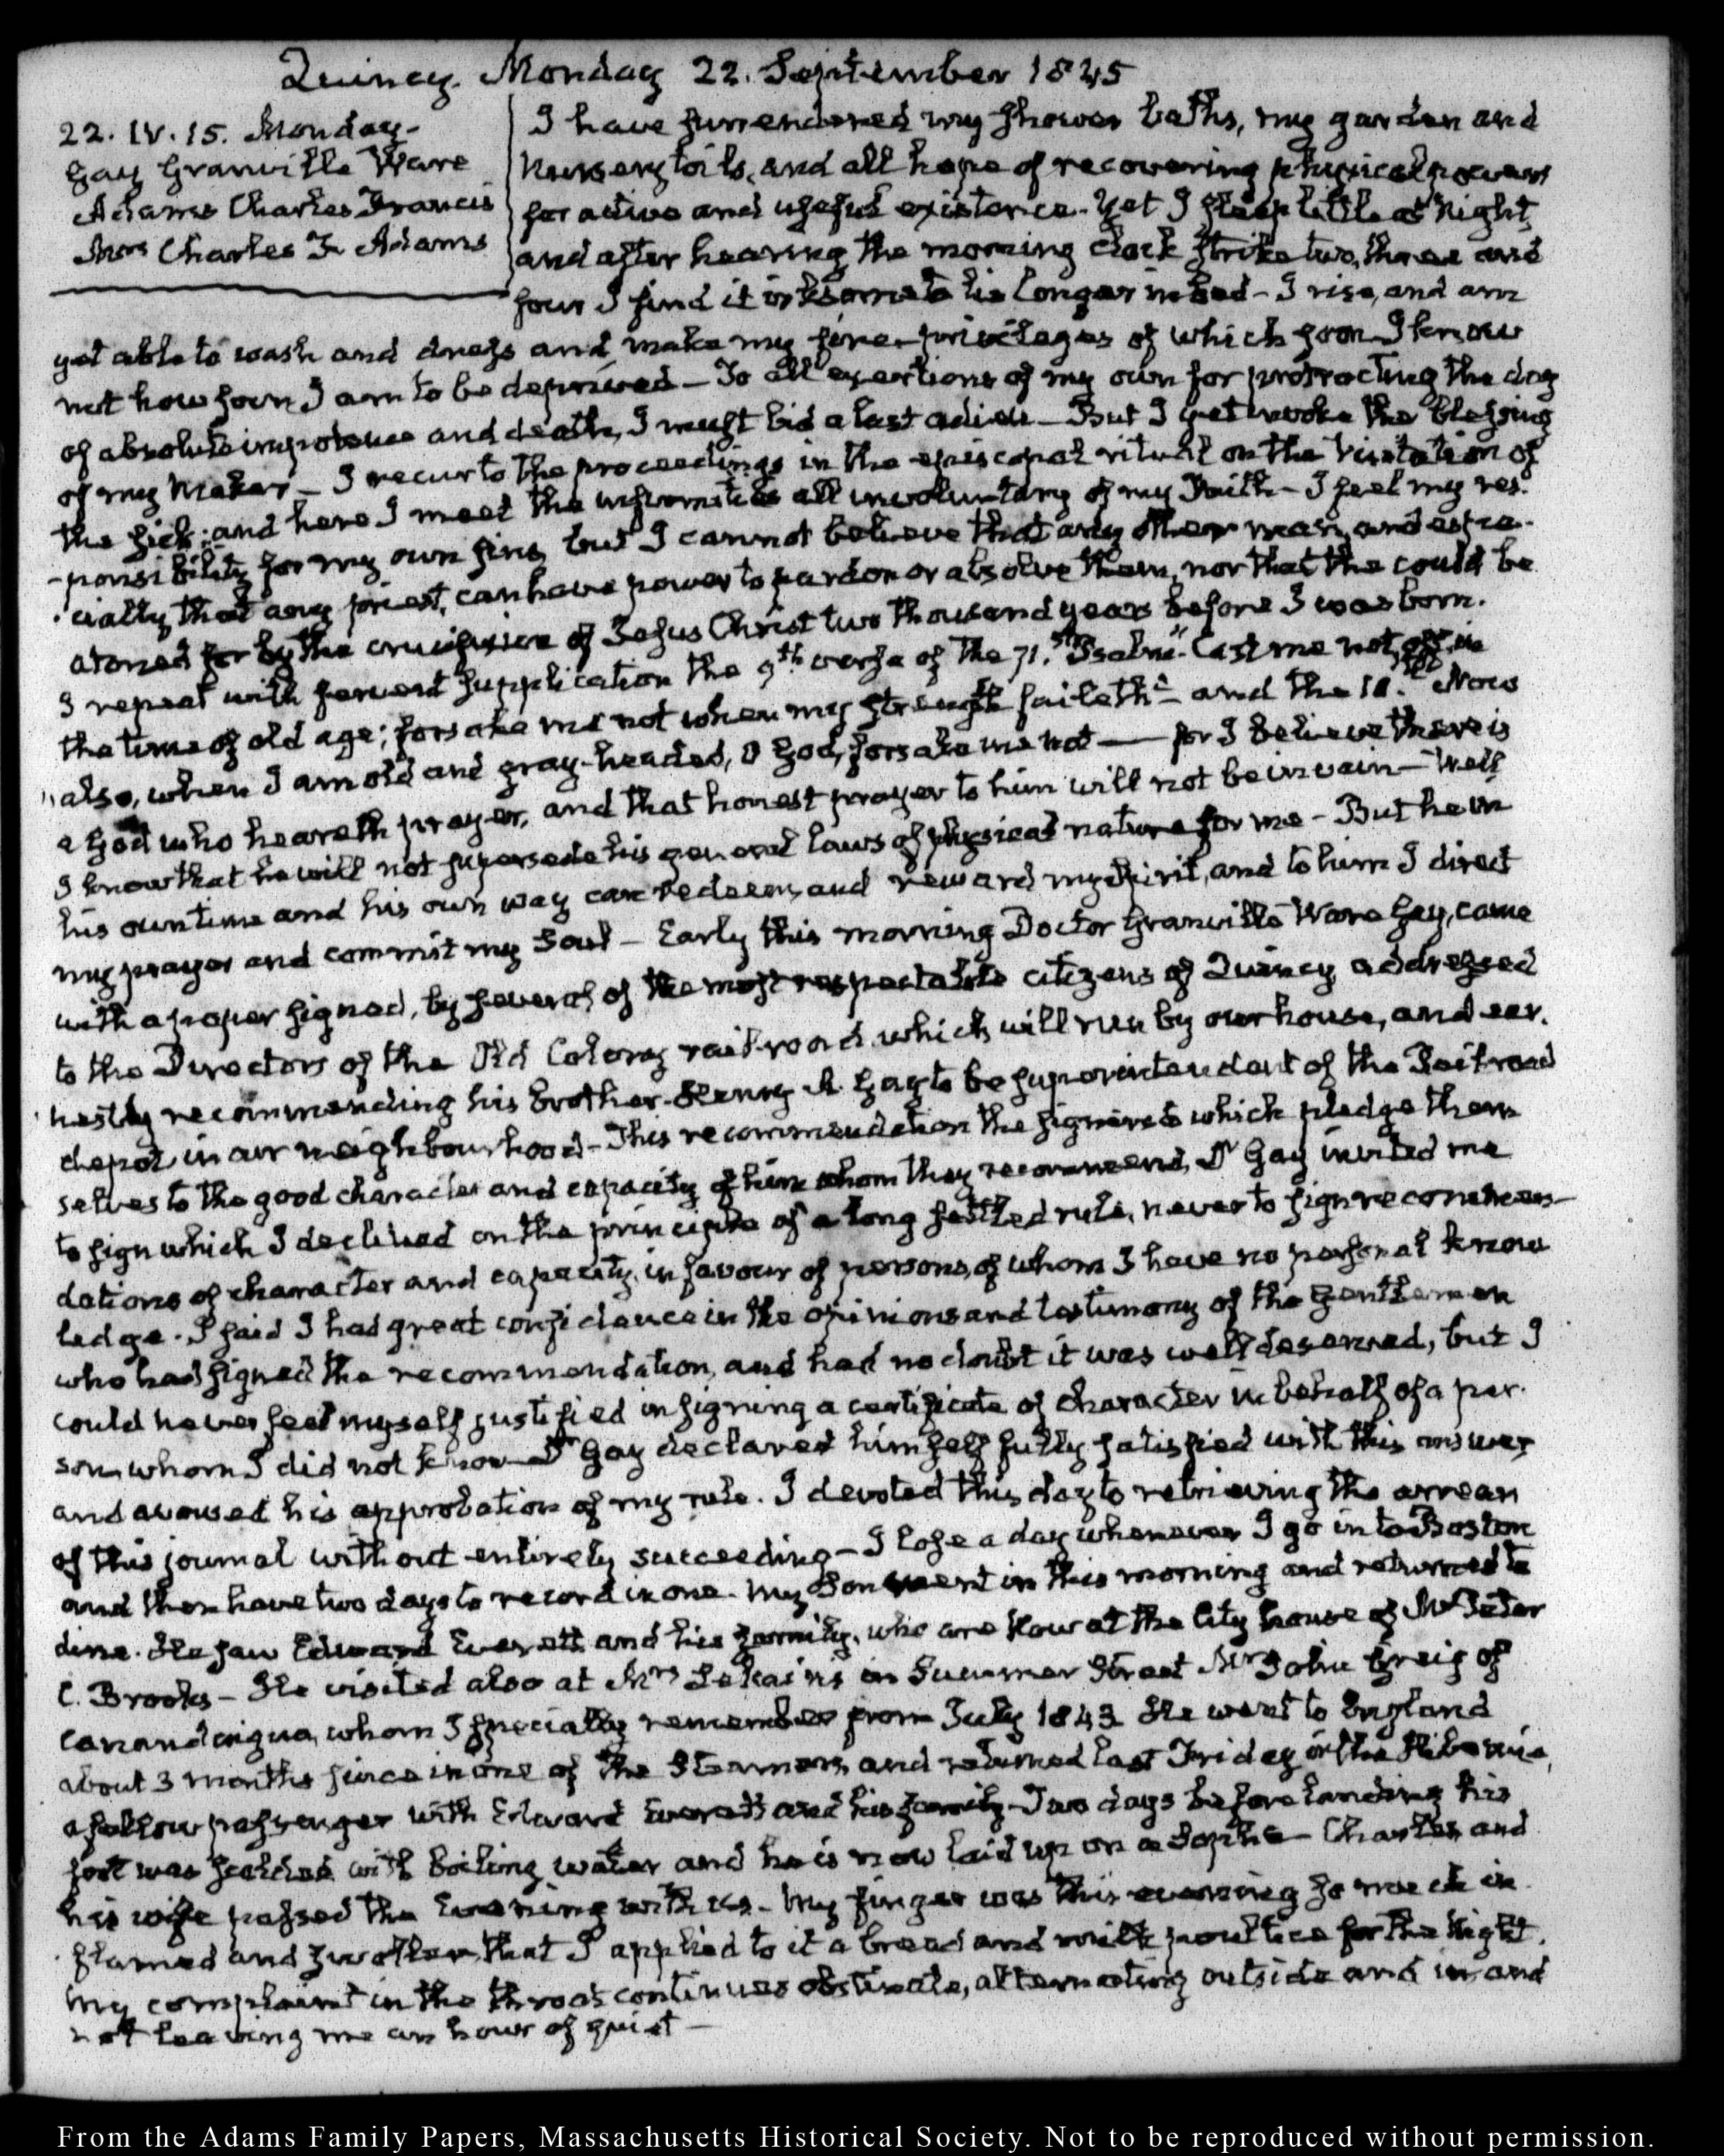 Quincy. Monday 22. September 1845
22. IV. 15. Monday-
Gay Granville Ware
Adams Charles Francis
Mrs Charles F. Adams
I have surrendered my shower baths, my garden and
nursery toils, and all hope of recovering physical powers
for active and useful existence. Yet I sleep little at Night,
and after hearing the morning clock strike two, three and
four I find it irksome to lie longer in bed - I rise, and am
yet able to wash and dress and make my fire, privileges of which soon I know
not how soon I am to be deprived - To all exertions of my own for protracting the day
of absolute impotence and death, I must bid a last adieu - But I yet invoke the blessing
of my Maker - I recur to the proceedings in the episcopal ritual on the Visitation of
the sick; and here I meet the infirmities all involuntary of my Faith - I feel my res-
-ponsibility for my own sins, but I cannot believe that any other man, and espe-
cially that any priest, can have power to pardon or absolve them, nor that the could be
atoned for by the crucifixion of Jesus Christ two thousand years before I was born.
I repeat with fervent supplication the 9th verse of the 71.st Psalm "Cast me not off in
the time of old age; forsake me not when my strength faileth" - and the 18.th Now
"also, when I am old and gray-headed, O God, forsake me not — for I believe there is
a God who heareth prayer, and that honest prayer to him will not be in vain - Well
I know that he will not supersede his general laws of physical nature for me - But he in
his own time and his own way can redeem, and reward my Spirit, and to him I direct
my prayer and commit my Soul - Early this morning Doctor Granville Ware Gay, came
with a paper signed, by several of the most respectable citizens of Quincy addressed
to the Directors of the Old Colony rail-road which will run by our house, and ear-
nestly recommending his brother Henry A. Gay to be superintendent of the Railroad
depot in our neighbourhood - This recommendation the signers to which pledge them
selves to the good character and capacity of him whom they recommend, Dr Gay invited me
to sign which I declined on the principle of a long settled rule, never to sign recommen-
dations of character and capacity, in favour of persons, of whom I have no personal know
ledge. I said I had great confidence in the opinions and testimony of the Gentlemen
who had signed the recommendation, and had no doubt it was well deserved, but I
could never feel myself justified in signing a certificate of character in behalf of a per-
son whom I did not know - Dr Gay declared himself fully satisfied with this answer
and avowed his approbation of my rule. I devoted this day to retrieving the arrear
of this journal without entirely succeeding - I lose a day whenever I go into Boston
and then have two days to record in one. My Son went in this morning and returned to
dine. He saw Edward Everett and his family, who are now at the City house of Mr Peter
C. Brooks - He visited also at Mrs in Summer Street Mr John Greig of
Canandaigua, whom I specially remember from July 1843 He went to England
about 3 months since in one of the Steamers, and returned last Friday in the Hibernia,
a fellow passenger with Edward Everett and his family - Two days before landing his
foot was scalded with boiling water and he is now laid up on a Sopha - Charles and
his wife passed the Evening with us. - My finger was this evening so much in
flamed and swollen, that I applied to it a bread and milk poultice for the Night.
My complaint in the throat continues obstinate, alternating outside and in, and
not leaving me an hour of quiet —
From the Adams Family Papers, Massachusetts Historical Society. Not to be reproduced without permission.